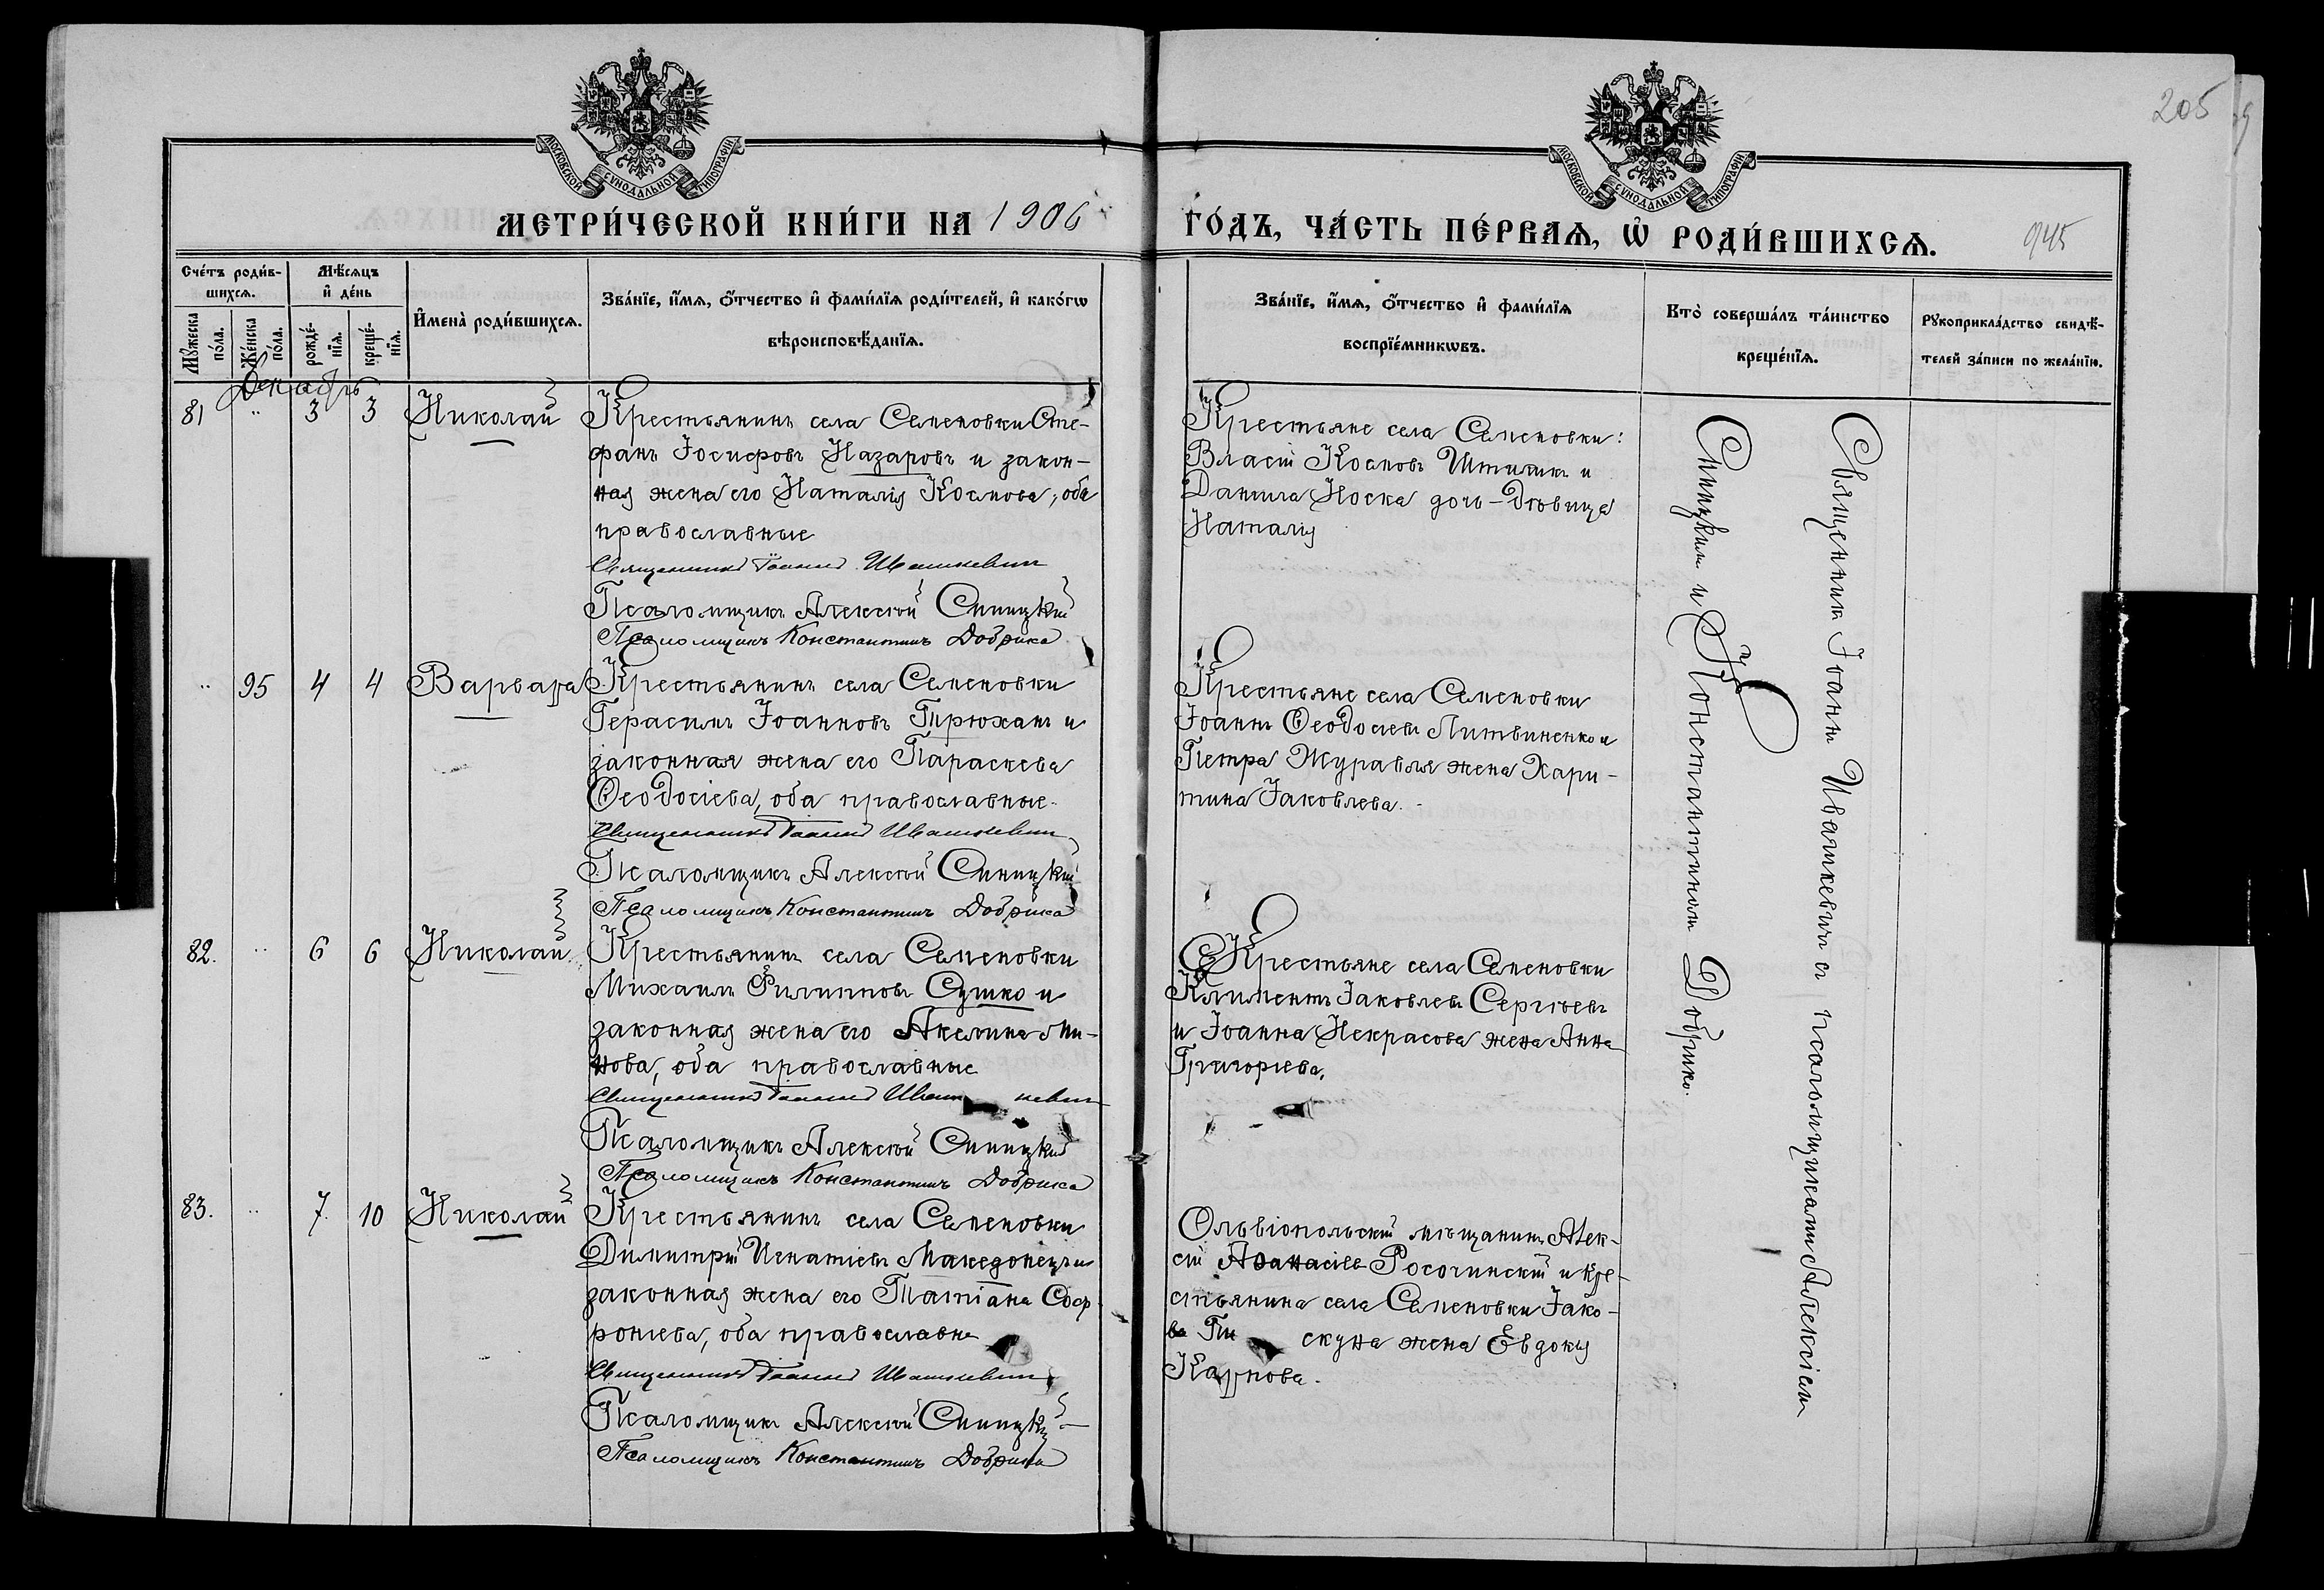 205
МОСКОВСКОЙ СѴНОДАЛЬНОЙ ТИПОГРАФІИ
МОСКОВСКОЙ СѴНОДАЛЬНОЙ ТИПОГРАФІИ
МЕТРИ́ЧЕСКОЙ КНИ́ГИ НА 1906
ГО́ДЪ, ЧА́СТЬ ПЕ́РВАѦ, Ѡ҆ РОДИ́ВШИХСѦ.
945
Сче́тъ роди́в-
шихсѧ.
Мѣ́сяцъ
и҆ де́нь
Мꙋ́жеска
по́ла.
Же́нска
по́ла.
рожде́-
нїѧ.
креще́-
нїѧ.
И҆мена̀ роди́вшихсѧ.
Зва́нїе, и҆́мѧ, ѻ҆́тчество и҆ фами́лїѧ роди́телей, и҆ како́гѡ
вѣроисповѣ́данїѧ.
Зва́нїе, и҆́мѧ, ѻ҆́тчество и҆ фами́лїѧ
воспрїе́мникѡвъ.
Кто̀ соверша́лъ та́инство
креще́нїѧ.
Рꙋкоприкла́дство свидѣ́-
телей за́писи по жела́нїю.
Декабрь
81 " 3 3 Николай
Крестьянинъ села Семеновки Сте-
фанъ Іосифовъ Назаровъ и закон-
ная жена его Наталія Космова, оба
православные
Священникъ Іоаннъ Ивашкевичъ
Псаломщикъ Алексѣй Синицкій
Псаломщикъ Константинъ Добрика
Крестьяне села Семеновки:
Власій Космовъ и
Данила Носка дочь-дѣвица
Наталія
" 95 4 4 Варвара
Крестьянинъ села Семеновки
Герасимъ Іоанновъ Трюханъ и
законная жена его Параскева
Ѳеодосіева, оба православные.
Священникъ Іоаннъ Ивашкевичъ
Псаломщикъ Алексѣй Синицкій
Псаломщикъ Константинъ Добрика
Крестьяне села Семеновки
Іоаннъ Ѳеодосіевъ Литвиненко и
Петра Журавля жена Хари-
тина Іаковлева.
82. " 6 6 Николай
Крестьянинъ села Семеновки
Михаилъ Филипповъ Сушко и
законная жена его Акелина Ми-
нова, оба православные
Священникъ Іоаннъ Ивашкевичъ
Псаломщикъ Алексѣй Синицкій
Псаломщикъ Константинъ Добрика
Крестьяне села Семеновки
Климентъ Іаковлевъ Сергѣевъ
и Іоанна Некрасова жена Анна
Григорьева.
83. " 7. 10 Николай
Крестьянинъ села Семеновки
Димитрій Игнатіевъ Македонецъ и
законная жена его Татіана Соф-
роніева, оба православны
Священникъ Іоаннъ Ивашкевичъ
Псаломщикъ Алексѣй Синицкій
Псаломщикъ Константинъ Добрика
Ольвіопольскій мѣщанинъ Алек-
сій Аѳанасіев Росочинскій и кре-
стьянина села Семеновки Іако-
ва скуна жена Евдокія
Карпова.
Священник Іоаннъ Ивашкевичъ съ псаломщиками Алексіем
Синицким и Константином Добрико.